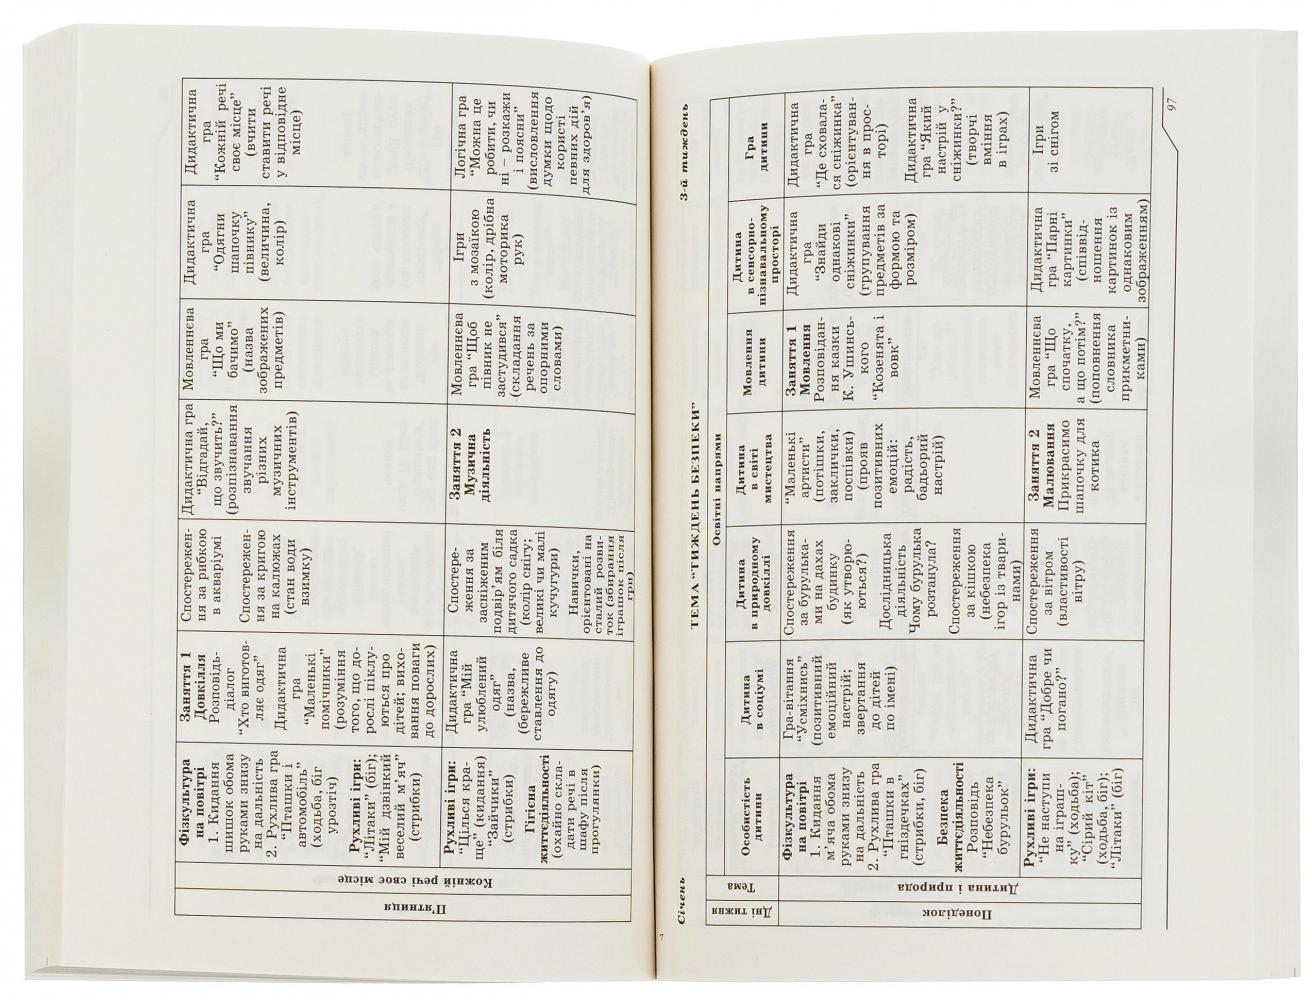 П’ятниця
Кожній речі своє місце
Фізкультура
на повітрі
1. Кидання
шишок обома
руками знизу
на дальність
2. Рухлива гра
“Пташки і
автомобіль”
(ходьба, біг
урозтіч)
Рухливі ігри:
“Літаки” (біг);
“Мій дзвінкий
веселий м’яч”
(стрибки)
Заняття 1
Довкілля
Розповідь-
діалог
“Хто виготов-
ляє одяг”
Дидактична
гра
“Маленькі
помічники”
(розуміння
того, що до-
рослі піклу-
ються про
дітей; вихо-
вання поваги
до дорослих)
Спостережен-
ня за рибкою
в акваріумі
Спостережен-
ня за кригою
на калюжах
(стан води
взимку)
Дидактична гра
“Відгадай,
що звучить?”
(розпізнавання
звучання
різних
музичних
інструментів)
Мовленнєва
гра
“Що ми
бачимо”
(назва
зображених
предметів)
Дидактична
гра
“Одягни
шапочку
півнику”
(величина,
колір)
Дидактична
гра
“Кожній речі
своє місце”
(вчити
ставити речі
у відповідне
місце)
Рухливі ігри:
“Цілься кра-
ще” (кидання)
“Зайчики”
(стрибки)
Гігієна
життєдіяльності
(охайно скла-
дати речі в
шафу після
прогулянки)
Дидактична
гра “Мій
улюблений
одяг”
(назва,
бережливе
ставлення до
одягу)
Спостере-
ження за
засніженим
подвір’ям біля
дитячого садка
(колір снігу;
великі чи малі
кучугури)
Навички,
орієнтовані на
сталий розви-
ток (збирання
іграшок після
гри)
Заняття 2
Музична
діяльність
Мовленнєва
гра “Щоб
півник не
застудився”
(складання
речень за
опорними
словами)
Ігри
з мозаїкою
(колір, дрібна
моторика
рук)
Логічна гра
“Можна це
робити, чи
ні – розкажи
і поясни”
(висловлення
думки щодо
користі
певних дій
для здоров’я)
7
Січень
3-й тиждень
ТЕМА “ТИЖДЕНЬ БЕЗПЕКИ”
Дні тижня
Тема
Освітні напрями
Особистість
дитини
Дитина
в соціумі
Дитина
в природному
довкіллі
Дитина
в світі
мистецтва
Мовлення
дитини
Дитина
в сенсорно-
пізнавальному
просторі
Гра
дитини
Понеділок
Дитина і природа
Фізкультура
на повітрі
1. Кидання
м’яча обома
руками знизу
на дальність
2. Рухлива гра
“Пташки в
гніздечках”
(стрибки, біг)
Безпека
життєдіяльності
Розповідь
“Небезпека
бурульок”
Гра-вітання
“Усміхнись”
(позитивний
емоційний
настрій;
звертання
до дітей
по імені)
Спостереження
за бурулька-
ми на дахах
будинку
(як утворю-
ються?)
Дослідницька
діяльність
Чому бурулька
розтанула?
Спостереження
за кішкою
(небезпека
ігор із твари-
нами)
“Маленькі
артисти”
(потішки,
заклички,
поспівки)
(прояв
позитивних
емоцій:
радість,
бадьорий
настрій)
Заняття 1
Мовлення
Розповідан-
ня казки
К. Ушинсь-
кого
“Козенята і
вовк”
Дидактична
гра
“Знайди
однакові
сніжинки”
(групування
предметів за
формою та
розміром)
Дидактична
гра
“Де сховала-
ся сніжинка”
(орієнтуван-
ня в прос-
торі)
Дидактична
гра “Який
настрій у
сніжинки?”
(творчі
вміння
в іграх)
Рухливі ігри:
“Не наступи
на іграш-
ку” (ходьба);
“Сірий кіт”
(ходьба, біг);
“Літаки” (біг)
Дидактична
гра “Добре чи
погано?”
Спостереження
за вітром
(властивості
вітру)
Заняття 2
Малювання
Прикрасимо
шапочку для
котика
Мовленнєва
гра “Що
спочатку,
а що потім?”
(поповнення
словника
прикметни-
ками)
Дидактична
гра “Парні
картинки”
(співвід-
ношення
картинок із
однаковим
зображенням)
Ігри
зі снігом
97